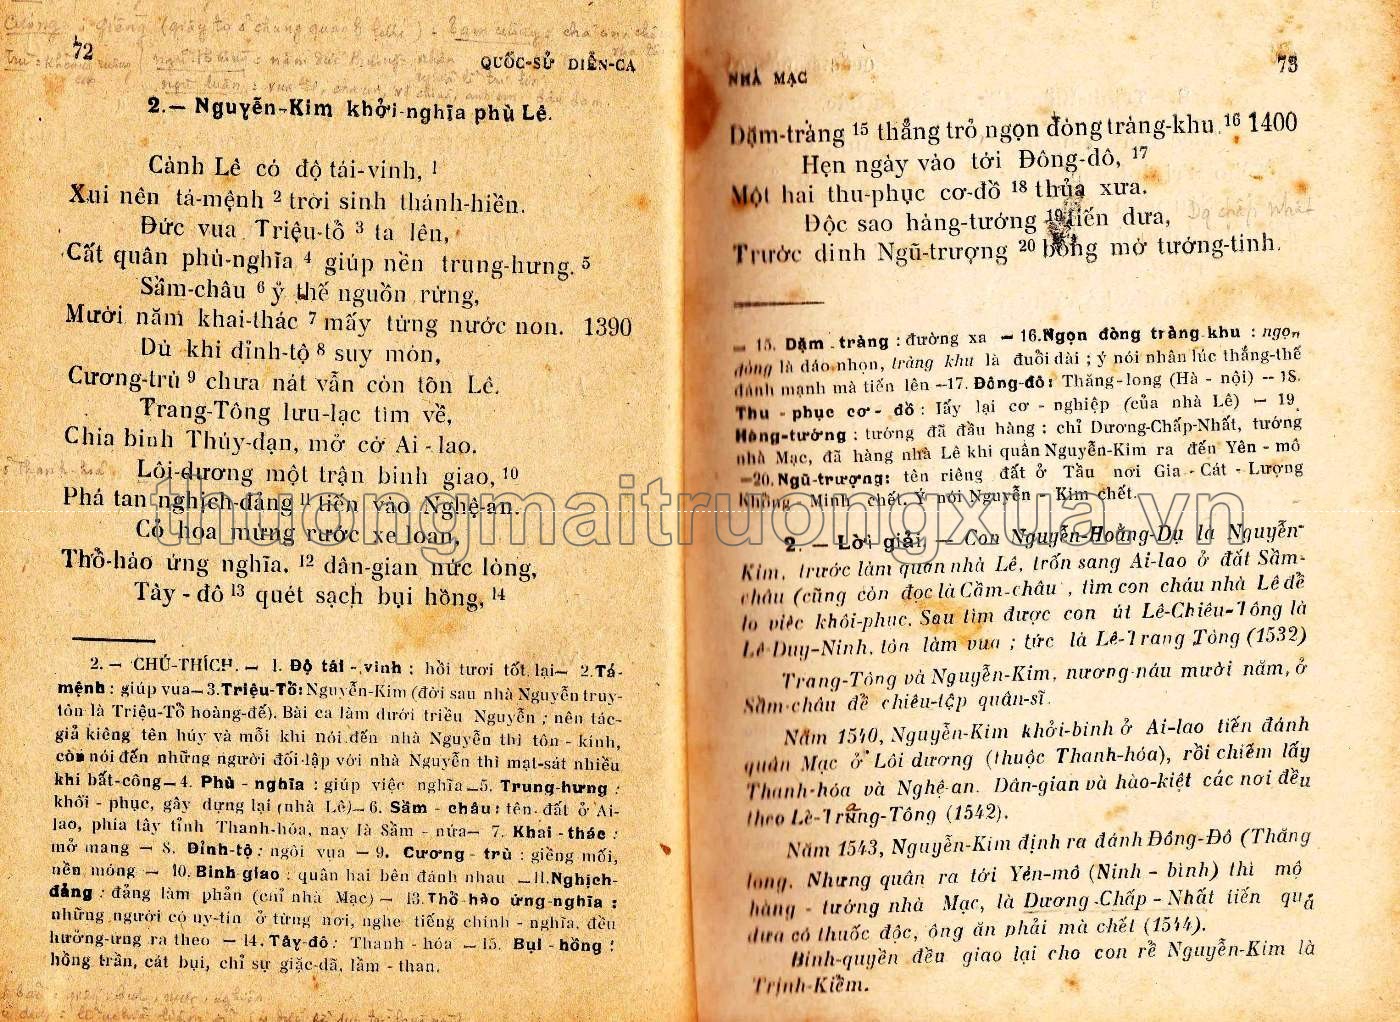 72
QUỐC-SỬ DIỄN-CA
2.— Nguyễn-Kim khởi-nghĩa phù Lê.
Cảnh Lê có độ tái-vinh, 1
Xui nên tá-mệnh 2 trời sinh thánh-hiền.
Đức vua Triệu-tổ 3 ta lên,
Cất quân phù-nghĩa 4 giúp nền trung-hưng. 5
Sầm-châu 6 ỷ thế nguồn rừng,
Mười năm khai-thác 7 mấy từng nước non. 1390
Dù khi đỉnh-tộ 8 suy mòn,
Cương-trù 9 chưa nát vẫn còn tôn Lê.
Trang-Tông lưu-lạc tìm về,
Chia binh Thúy-đạn, mở cờ Ai-lao.
Lôi-dương một trận binh giao, 10
Phá tan nghịch-đảng 11 tiến vào Nghệ-an.
Cỏ hoa mừng rước xe loan,
Thổ-hào ứng nghĩa, 12 dân-gian nức lòng,
Tây-đô 13 quét sạch bụi hồng, 14
2. — CHÚ-THÍCH. — 1. Độ tái-vinh : hồi tươi tốt lại— 2.Tá-
mệnh : giúp vua— 3.Triệu-Tổ: Nguyễn-Kim (đời sau nhà Nguyễn truy-
tôn là Triệu-Tổ hoàng-đế). Bài ca làm dưới triều Nguyễn ; nên tác-
giả kiêng tên húy và mỗi khi nói đến nhà Nguyễn thì tôn-kính,
còn nói đến những người đối-lập với nhà Nguyễn thì mạt-sát nhiều
khi bất-công—4. Phù - nghĩa : giúp việc nghĩa—5. Trung-hưng :
khởi - phục, gây dựng lại (nhà Lê)— 6. Sầm - châu : tên đất ở Ai-
lao, phía tây tỉnh Thanh-hóa, nay là Sầm - nứa— 7. Khai-thác :
mở mang — 8. Đỉnh-tộ : ngôi vua — 9. Cương - trù : giềng mối,
nền móng — 10. Binh giao : quân hai bên đánh nhau —11.Nghịch-
đảng : đảng làm phản (chỉ nhà Mạc) — 13. Thổ-hào ứng-nghĩa :
những người có uy-tín ở từng nơi, nghe tiếng chính - nghĩa, đều
hưởng-ứng ra theo — 14. Tây-đô : Thanh - hóa — 15. Bụi-hồng :
hồng trần, cát bụi, chỉ sự giặc-dã, lầm - than.
NHÀ MẠC
73
Dặm-tràng 15 thẳng trỏ ngọn đòng tràng-khu. 16 1400
Hẹn ngày vào tới Đông-đô, 17
Một hai thu-phục cơ-đồ 18 thủa xưa.
Độc sao hàng-tướng 19 tiến dưa,
Trước dinh Ngũ-trượng 20 bỗng mờ tướng-tinh.
— 15. Dặm - tràng : đường xa — 16.Ngọn đòng tràng khu : ngọn
đòng là dáo nhọn, tràng khu là đuổi dài ; ý nói nhân lúc thắng-thế
đánh mạnh mà tiến lên —17. Đông-đô: Thăng-long (Hà - nội) — 18.
Thu - phục cơ - đồ : lấy lại cơ - nghiệp (của nhà Lê) — 19.
Hàng-tướng : tướng đã đầu hàng : chỉ Dương-Chấp-Nhất, tướng
nhà Mạc, đã hàng nhà Lê khi quân Nguyễn-Kim ra đến Yên - mô
—20. Ngũ-trượng: tên riêng đất ở Tần nơi Gia - Cát - Lượng
Khổng - Minh chết. Ý nói Nguyễn - Kim chết.
thuongmaitruongxua.vn
2. — Lời giải. — Con Nguyễn-Hoằng-Dụ là Nguyễn-
Kim, trước làm quan nhà Lê, trốn sang Ai-lao ở đất Sầm-
châu (cũng còn đọc là Cầm-châu), tìm con cháu nhà Lê để
lo việc khôi-phục. Sau tìm được con út Lê-Chiêu-Tông là
Lê-Duy-Ninh, tôn làm vua ; tức là Lê-Trang Tông (1532)
Trang-Tông và Nguyễn-Kim, nương-náu mười năm, ở
Sầm-châu để chiêu-tập quân-sĩ.
Năm 1540, Nguyễn-Kim khởi-binh ở Ai-lao tiến đánh
quân Mạc ở Lôi dương (thuộc Thanh-hóa), rồi chiếm lấy
Thanh-hóa và Nghệ-an. Dân-gian và hào-kiệt các nơi đều
theo Lê-Trang-Tông (1542).
Năm 1543, Nguyễn-Kim định ra đánh Đông-Đô (Thăng
long. Nhưng quân ra tới Yên-mô (Ninh - bình) thì mộ
hàng - tướng nhà Mạc, là Dương-Chấp-Nhất tiến quả
dưa có thuốc độc, ông ăn phải mà chết (1544).
Binh-quyền đều giao lại cho con rể Nguyễn-Kim là
Trịnh-Kiểm.